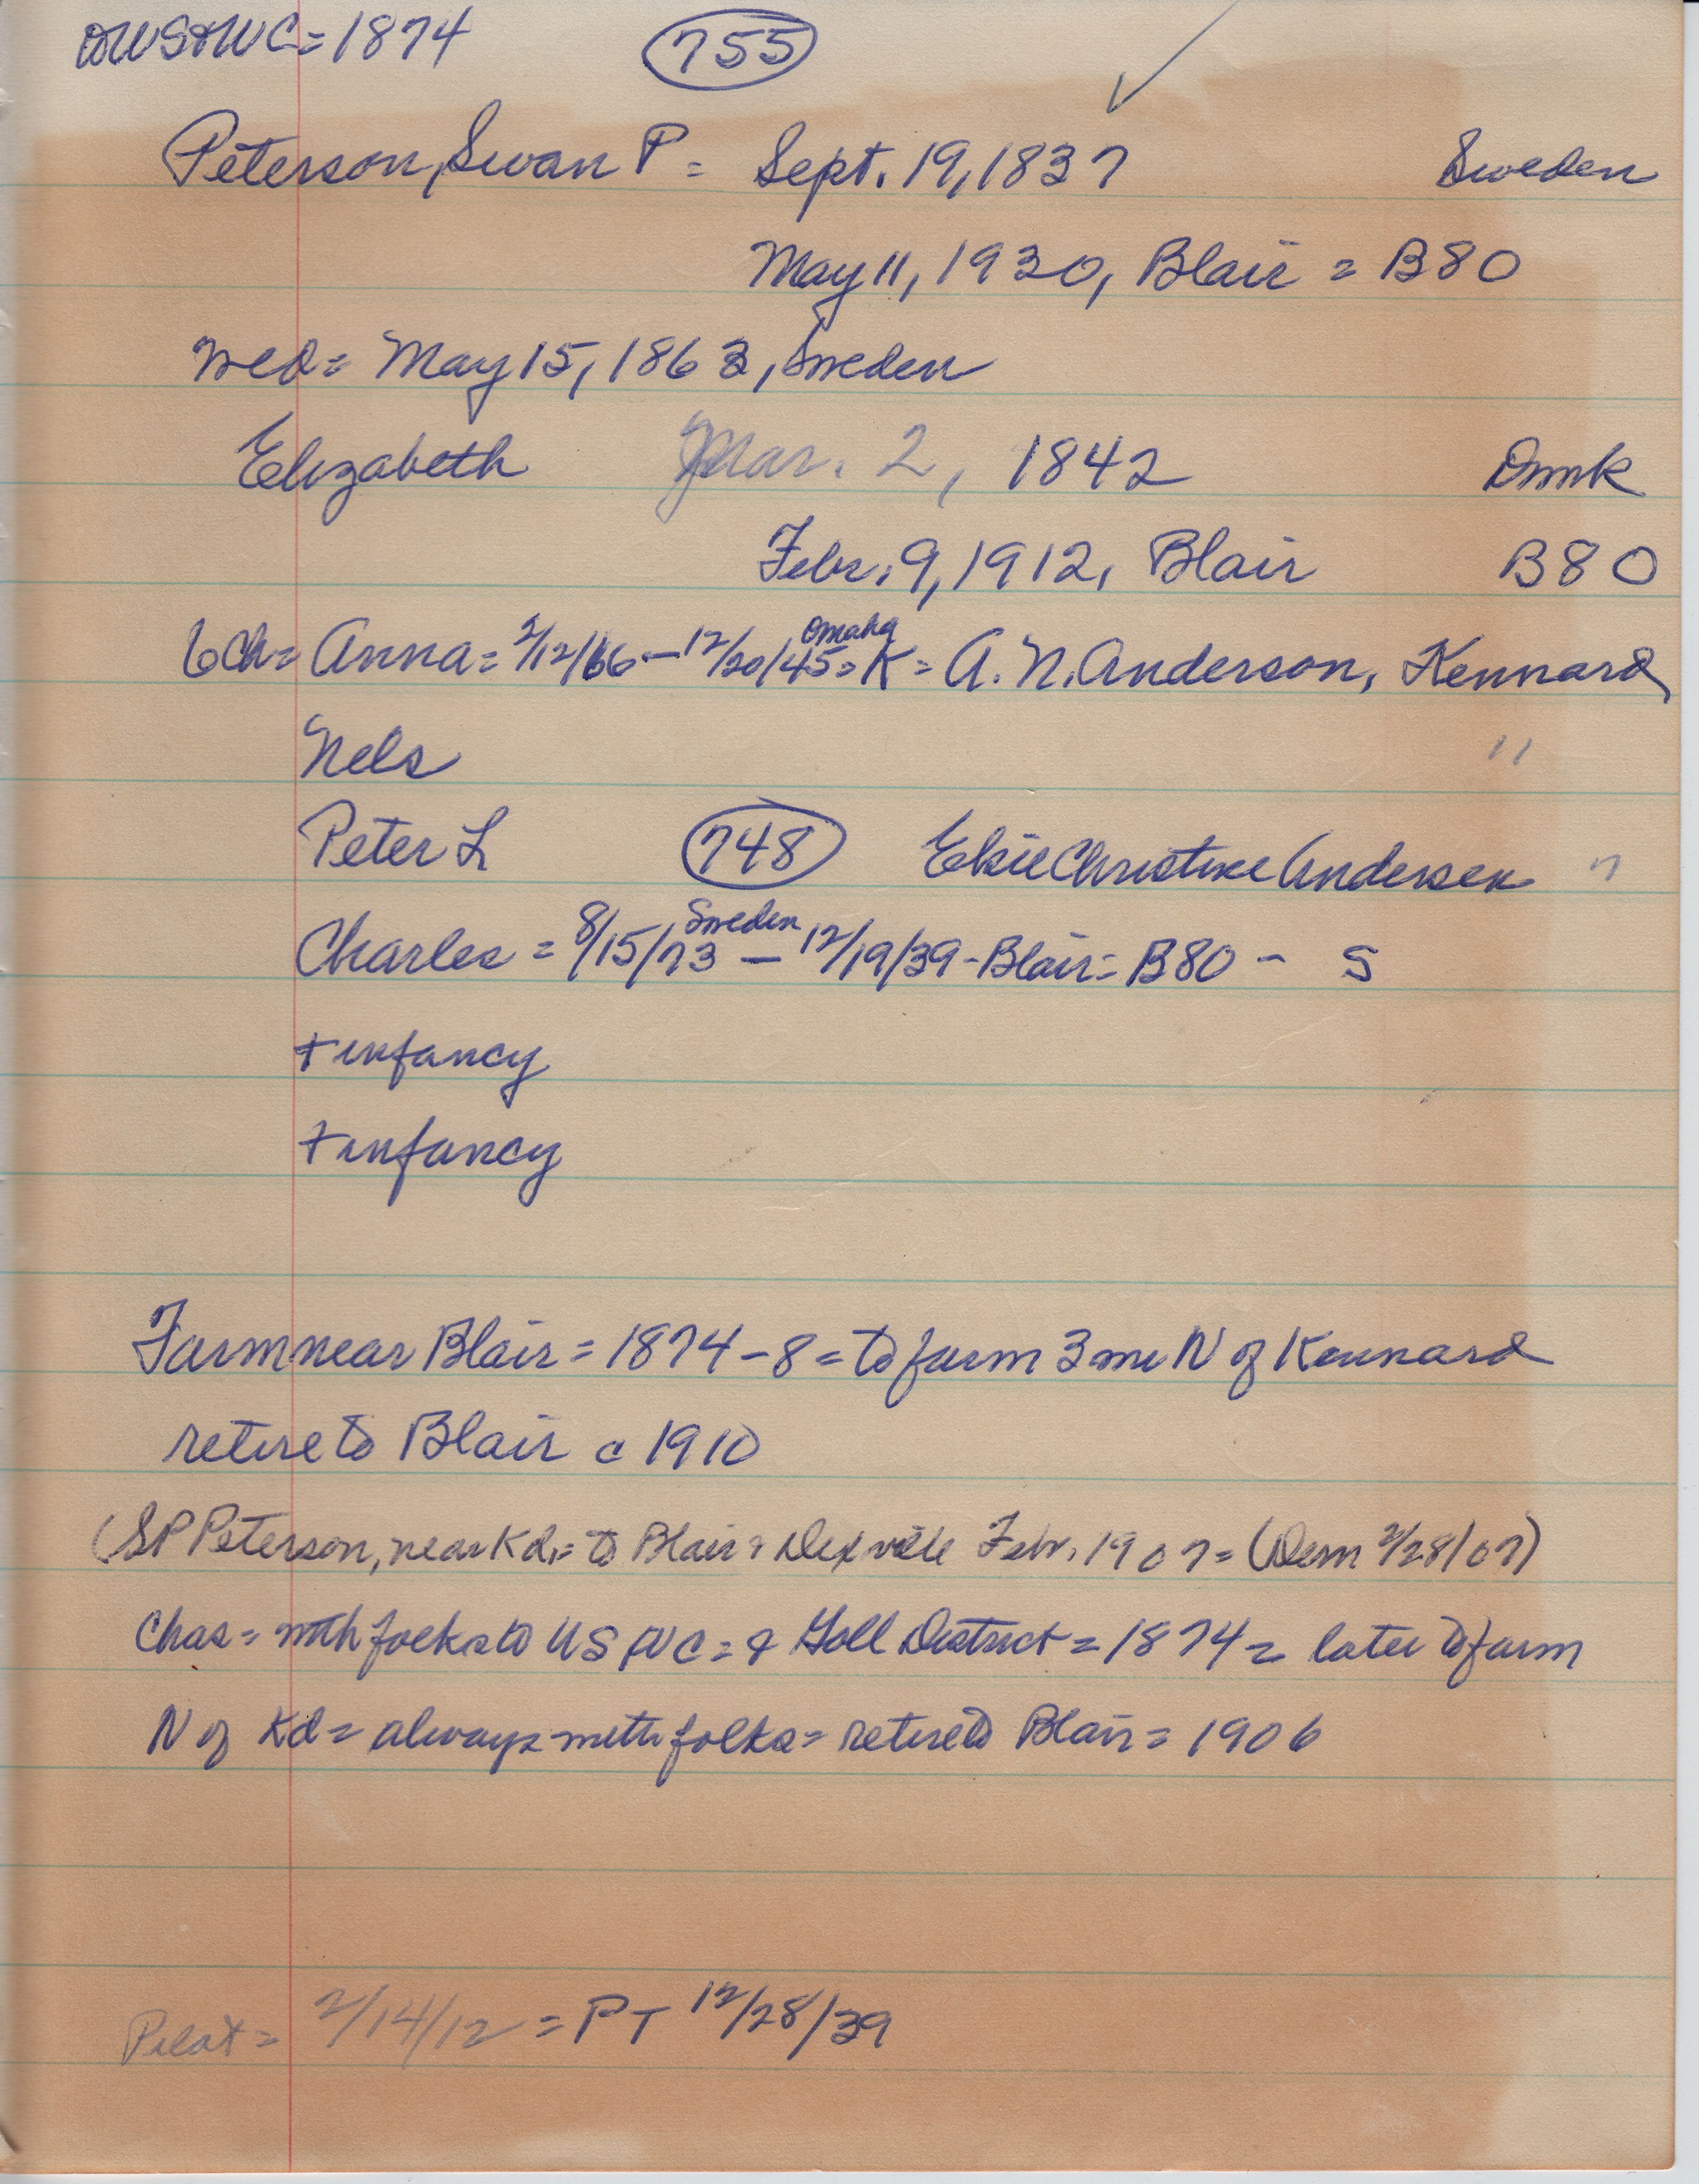 US & WC = 1874 755
Peterson, Swan P = Sept. 19, 1837 Sweden
May 11, 1930, Blair = B80
Wed = May 15, 1863, Sweden
Elizabeth Mar. 2, 1842 Dmk
Febr. 9, 1912, Blair B80
6 Ch = Anna = 2/12/66 - 12/20/45 = K = A. N. Anderson, Kennard
Omaha
Nels "
Peter L 748 Elsie Christine Andersen "
Charles = 8/15/73 Sweden - 12/19/39 - Blair = B80 - S
+ infancy
+ infancy
Farm near Blair = 1874-8 = to farm 3 mi N of Kennard
retire to Blair c 1910
(SP Peterson, near Kd, = to Blair & Dexville Febr. 1907 = (Dem 2/28/07)
Chas = with folks to US & WC = & Goll District = 1874 = later to farm
N of Kd = always with folks = retire to Blair = 1906
Pilot = 2/14/12 = PT 12/28/39